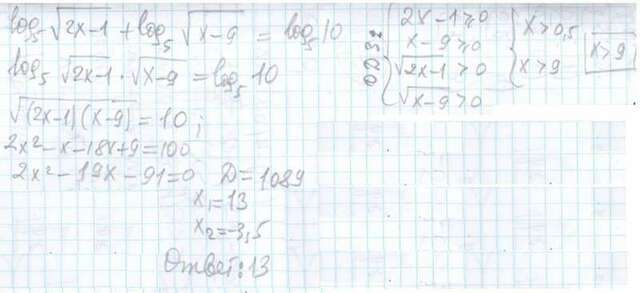 log₅√(2x-1) + log₅ √(x-9) = log₅10
log₅ √(2x-1) · √(x-9) = log₅ 10
√((2x-1)(x-9)) = 10;
2x²-x-18x+9=100
2x²-19x-91=0 D=1089
x₁=13
x₂=-3,5
Ответ: 13
ОДЗ:
2x-1≥0
x-9≥0
√(2x-1)>0
√(x-9)>0
x>0,5
x>9
x>9